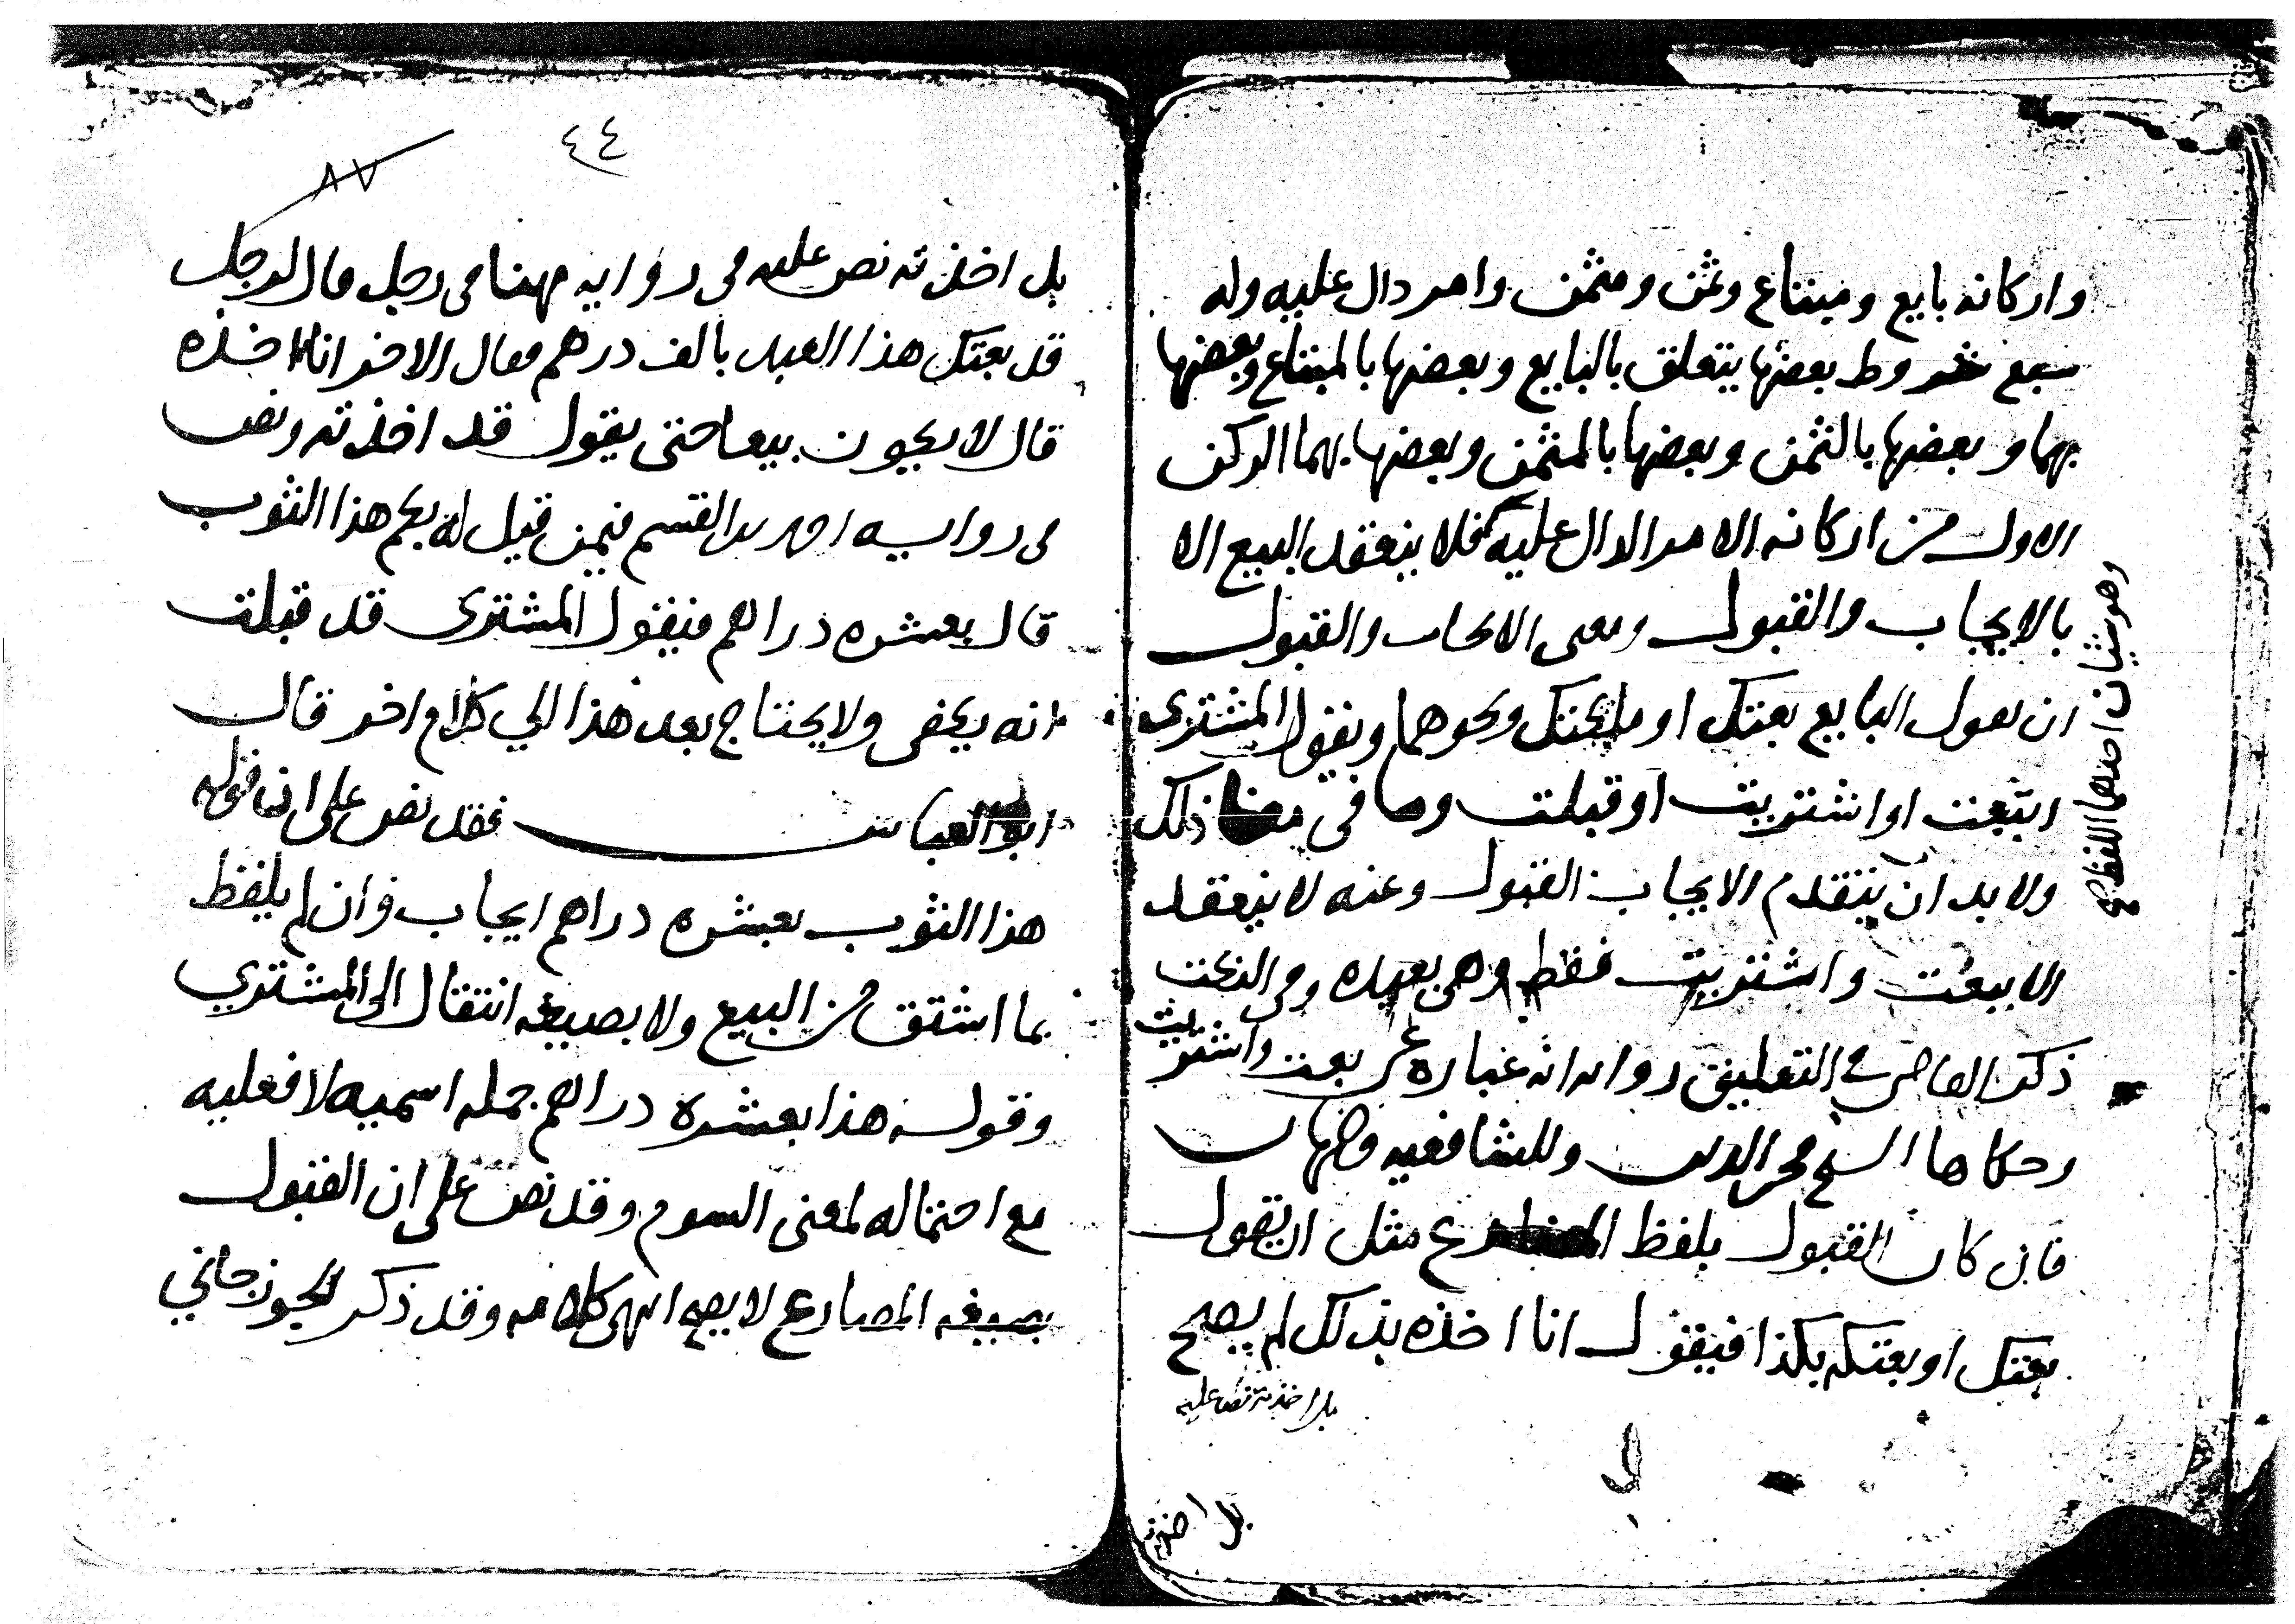 واركانه بايع ومبتاع وثمن ومثمن وامر دال عليه وله
سبع شروط بعضها يتعلق بالبايع وبعضها بالمبتاع وبعضها
بهما وبعضها بالثمن وبعضها بالمثمن وبعضها بهما الركن
الاول من اركانه الامر الدال عليه فلا ينعقد البيع الا
وهو شيئان احدهما اللفظ صح
بالايجاب والقبول ومعنى الايجاب والقبول
ان يقول البايع بعتك او ملكتك ونحوهما ويقول المشتري
ابتعت او اشتريت او قبلت وما في معنا ذلك
ولا بد ان يتقدم الايجاب القبول وعنه لا ينعقد
الا ببعت واشتريت فقط وهي بعيده وهي النكت
ذكر القاضي في التعليق روايه انه عباره عن بعت واشتريت
وحكاها الشيخ فخر الدين وللشافعيه وجهان
فان كان القبول بلفظ المضارع مثل ان يقول
بعتك او بعتكه بكذا فيقول انا اخذه بذلك لم يصح
بل اخذته نص عليه
بل اخذته
٤٤
٨٧
بل اخذته نص عليه في روايه مهنا في رجل قال لرجل
قد بعتك هذا العبد بالف درهم فقال الاخر انا اخذه
قال لا يكون بيعا حتى يقول قد اخذته ونص
في روايه احمد بن القسم فيمن قيل له بكم هذا الثوب
قال بعشره دراهم فيقول المشتري قد قبلت
انه يكفي ولا يحتاج بعد هذا الي كلام اخر قال
ابو العباس فقد نص على ان قوله
هذا الثوب بعشره دراهم ايجاب وان لم يلفظ
بما اشتق من البيع ولا بصيغه انتقال الى المشتري
وقوله هذا بعشره دراهم جمله اسميه لا فعليه
مع احتماله لمعنى السوم وقد نص على ان القبول
بصيغه المضارع لا يصح انتهى كلامه وقد ذكر الجوزجاني